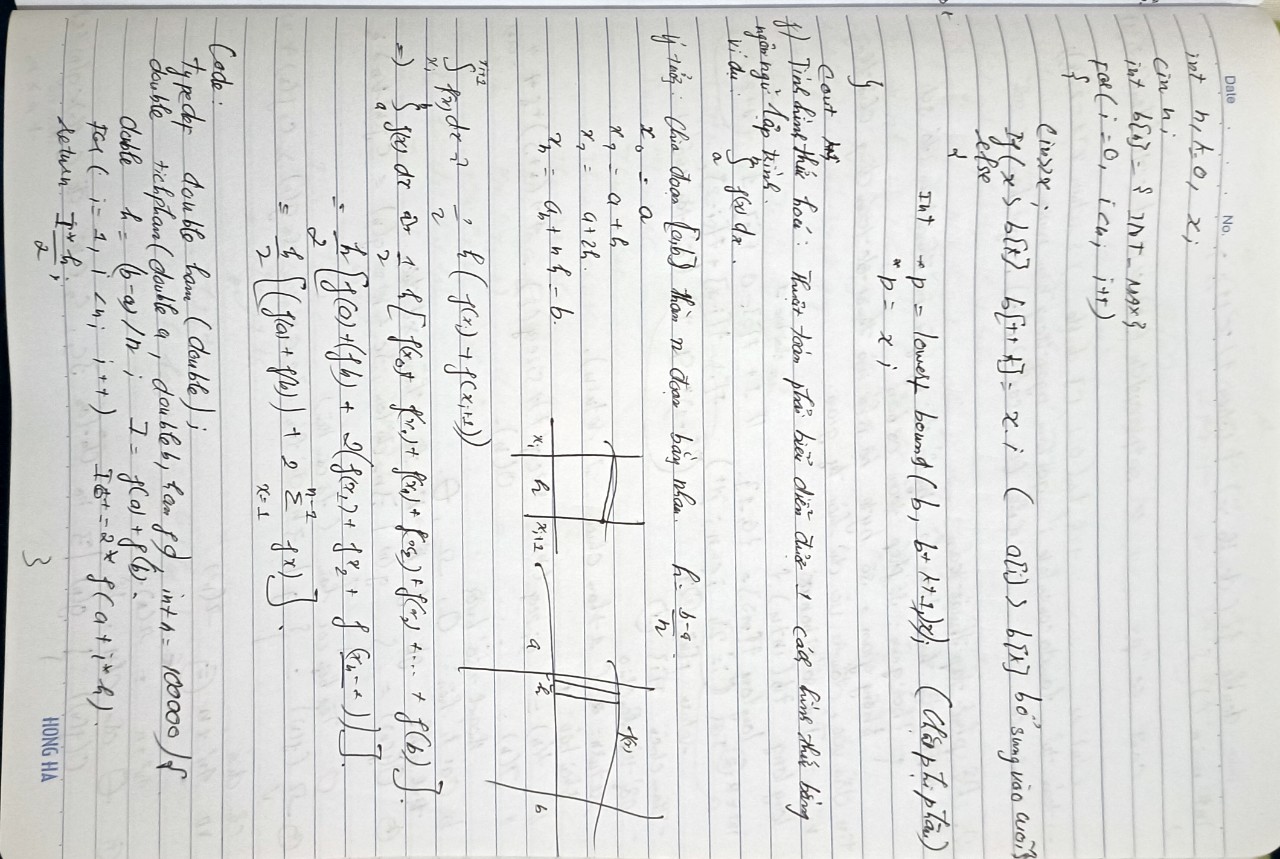 Date . . . No.
int n, k=0, x;
cin n;
int b[n] = { INT_MAX}
For( i=0, i<n; i++)
{
Cin>>x;
If( x > b[k] b[++k] = x. i ( a[i] > b[k] bổ sung vào cuối}
else
{
Int *p = lowest bound( b, b+k+1,x); (Chặp nhị phân)
*p = x ;
}
Cout
f) Tính hình thức hoá: Thuật toán phải biểu diễn được 1 cách hình thức bằng
ngôn ngữ lập trình.
ví dụ: ∫ₐᵇ f(x) dx.
ý tưởng: Chia đoạn [a,b] thàn n đoạn bằng nhau. h = (b-a)/n
x₀ = a
x₁ = a + h
x₂ = a+2h.
xₙ = aₙ + n h = b.
f(x)
xᵢ h xᵢ₊₁ a h b
∫ f(x) dx = ½ h ( f(xᵢ) + f(xᵢ₊₁))
=> ∫ₐᵇ f(x) dx ≈ ½ h [ f(x₀)+ f(x₁)+ f(x₁)+ f(x₂)+ f(x₂) +...+ f(b) ].
= h/2 [ f(0)+(fb) + 2(f(x₁)+ fx₂ + f(xₙ₋₁)) ].
= h/2 [ (f(a) + f(b)) + 2 Σ_{x=1}^{n-1} fx) ].
Code:
typedef double ham (double);
double tichphan( double a, double b, ham f), int n = 100000){
double h = (b-a) /n ; I = f(a) + f(b).
For ( i = 1, i <n; i++) I += 2* f(a+i*h).
return I*h/2;
3
HONG HA